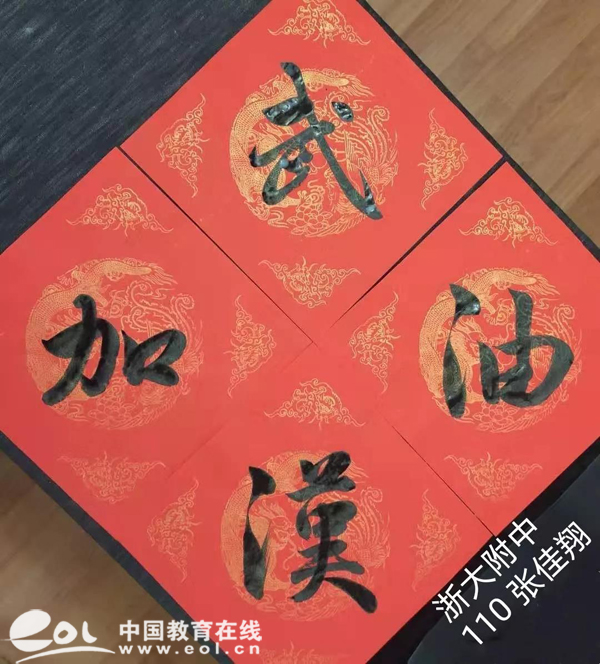 武
加
油
漢
浙大附中
110 张佳翔
eol 中国教育在线
www.eol.cn